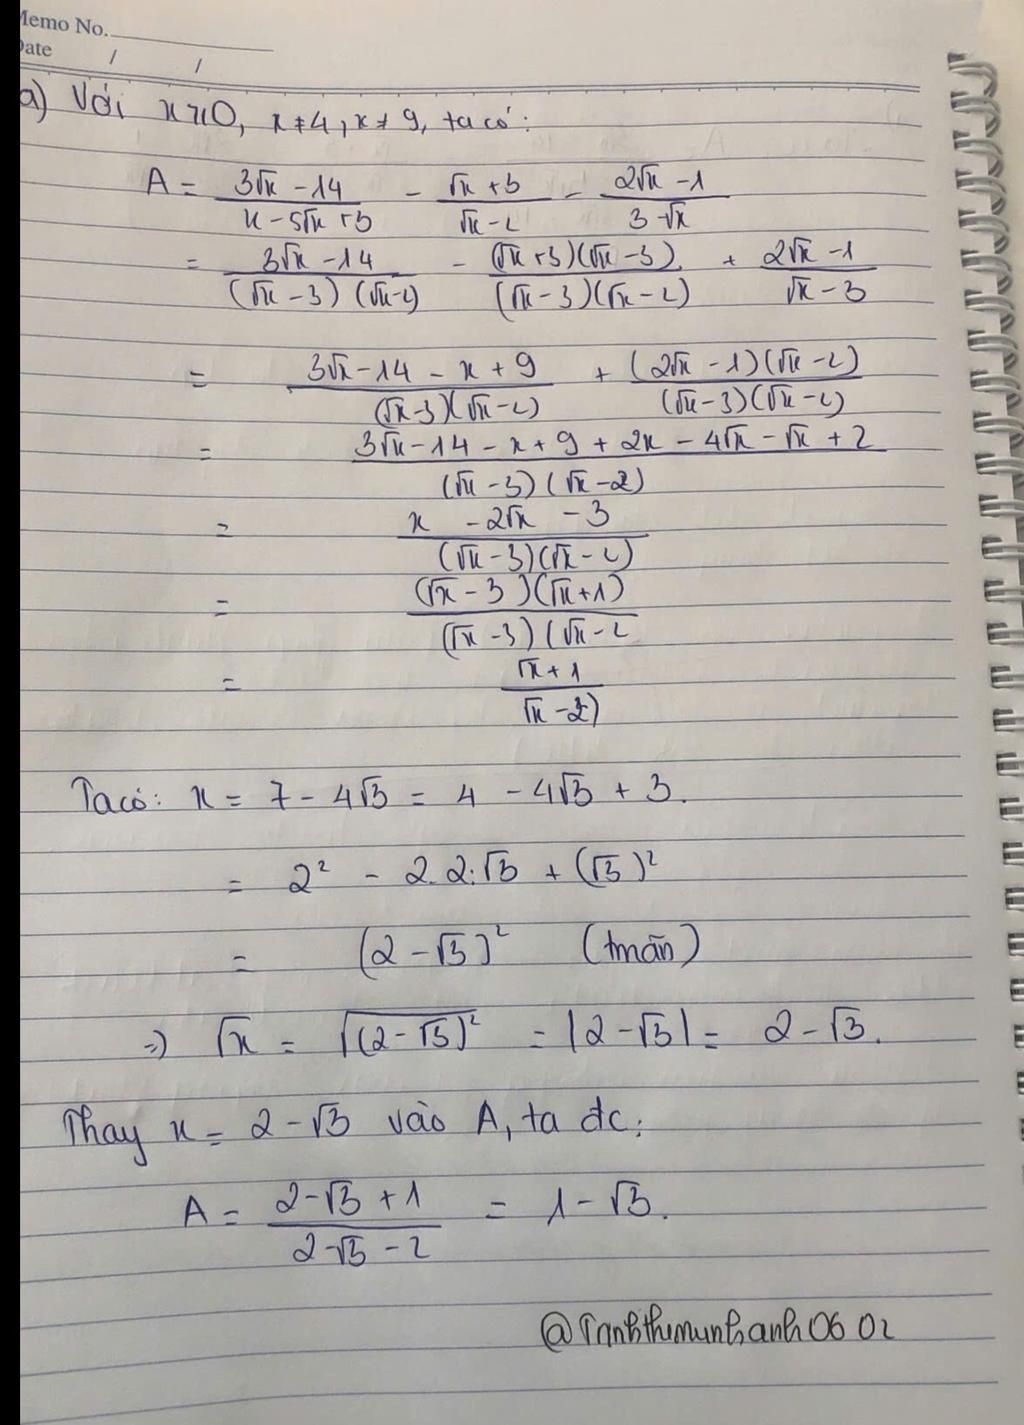 Memo No.
Date / /
a) Với x≥0, x≠4, x≠9, ta có:
A = (3√x - 14)/(x - 5√x + 3) - (√x + 3)/(√x - 2) - (2√x - 1)/(3 - √x)
= (3√x - 14)/((√x - 3)(√x - 2)) - ((√x + 3)(√x - 3))/((√x - 3)(√x - 2)) + (2√x - 1)/(√x - 3)
= (3√x - 14 - x + 9)/((√x - 3)(√x - 2)) + ((2√x - 1)(√x - 2))/((√x - 3)(√x - 2))
= (3√x - 14 - x + 9 + 2x - 4√x - √x + 2)/((√x - 3)(√x - 2))
= (x - 2√x - 3)/((√x - 3)(√x - 2))
= ((√x - 3)(√x + 1))/((√x - 3)(√x - 2
= (√x + 1)/(√x - 2)
Ta có: x = 7 - 4√3 = 4 - 4√3 + 3.
= 2² - 2.2.√3 + (√3)²
= (2 - √3)² (tmãn)
=> √x = √(2 - √3)² = |2 - √3| = 2 - √3.
Thay x = 2 - √3 vào A, ta đc:
A = (2 - √3 + 1)/(2 - √3 - 2) = 1 - √3.